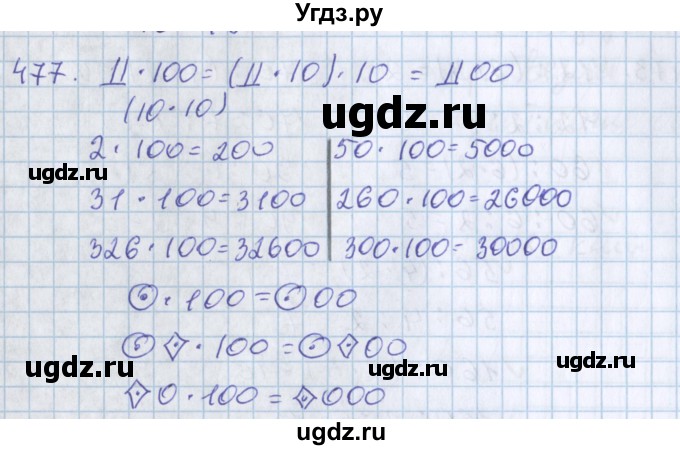 Угдз.ру
477. Д · 100 = (Д · 10) · 10 = Д00
(10 · 10)
ugdz.ru
ugdz.ru
2 · 100 = 200
50 · 100 = 5000
ugdz.ru
ugdz.ru
31 · 100 = 3100
260 · 100 = 26000
ugdz.ru
326 · 100 = 32600
300 · 100 = 30000
⊙ · 100 = ⊙00
ugdz.ru
ugdz.ru
⊙◇ · 100 = ⊙◇00
ugdz.ru
ugdz.ru
◇0 · 100 = ◇000
ugdz.ru